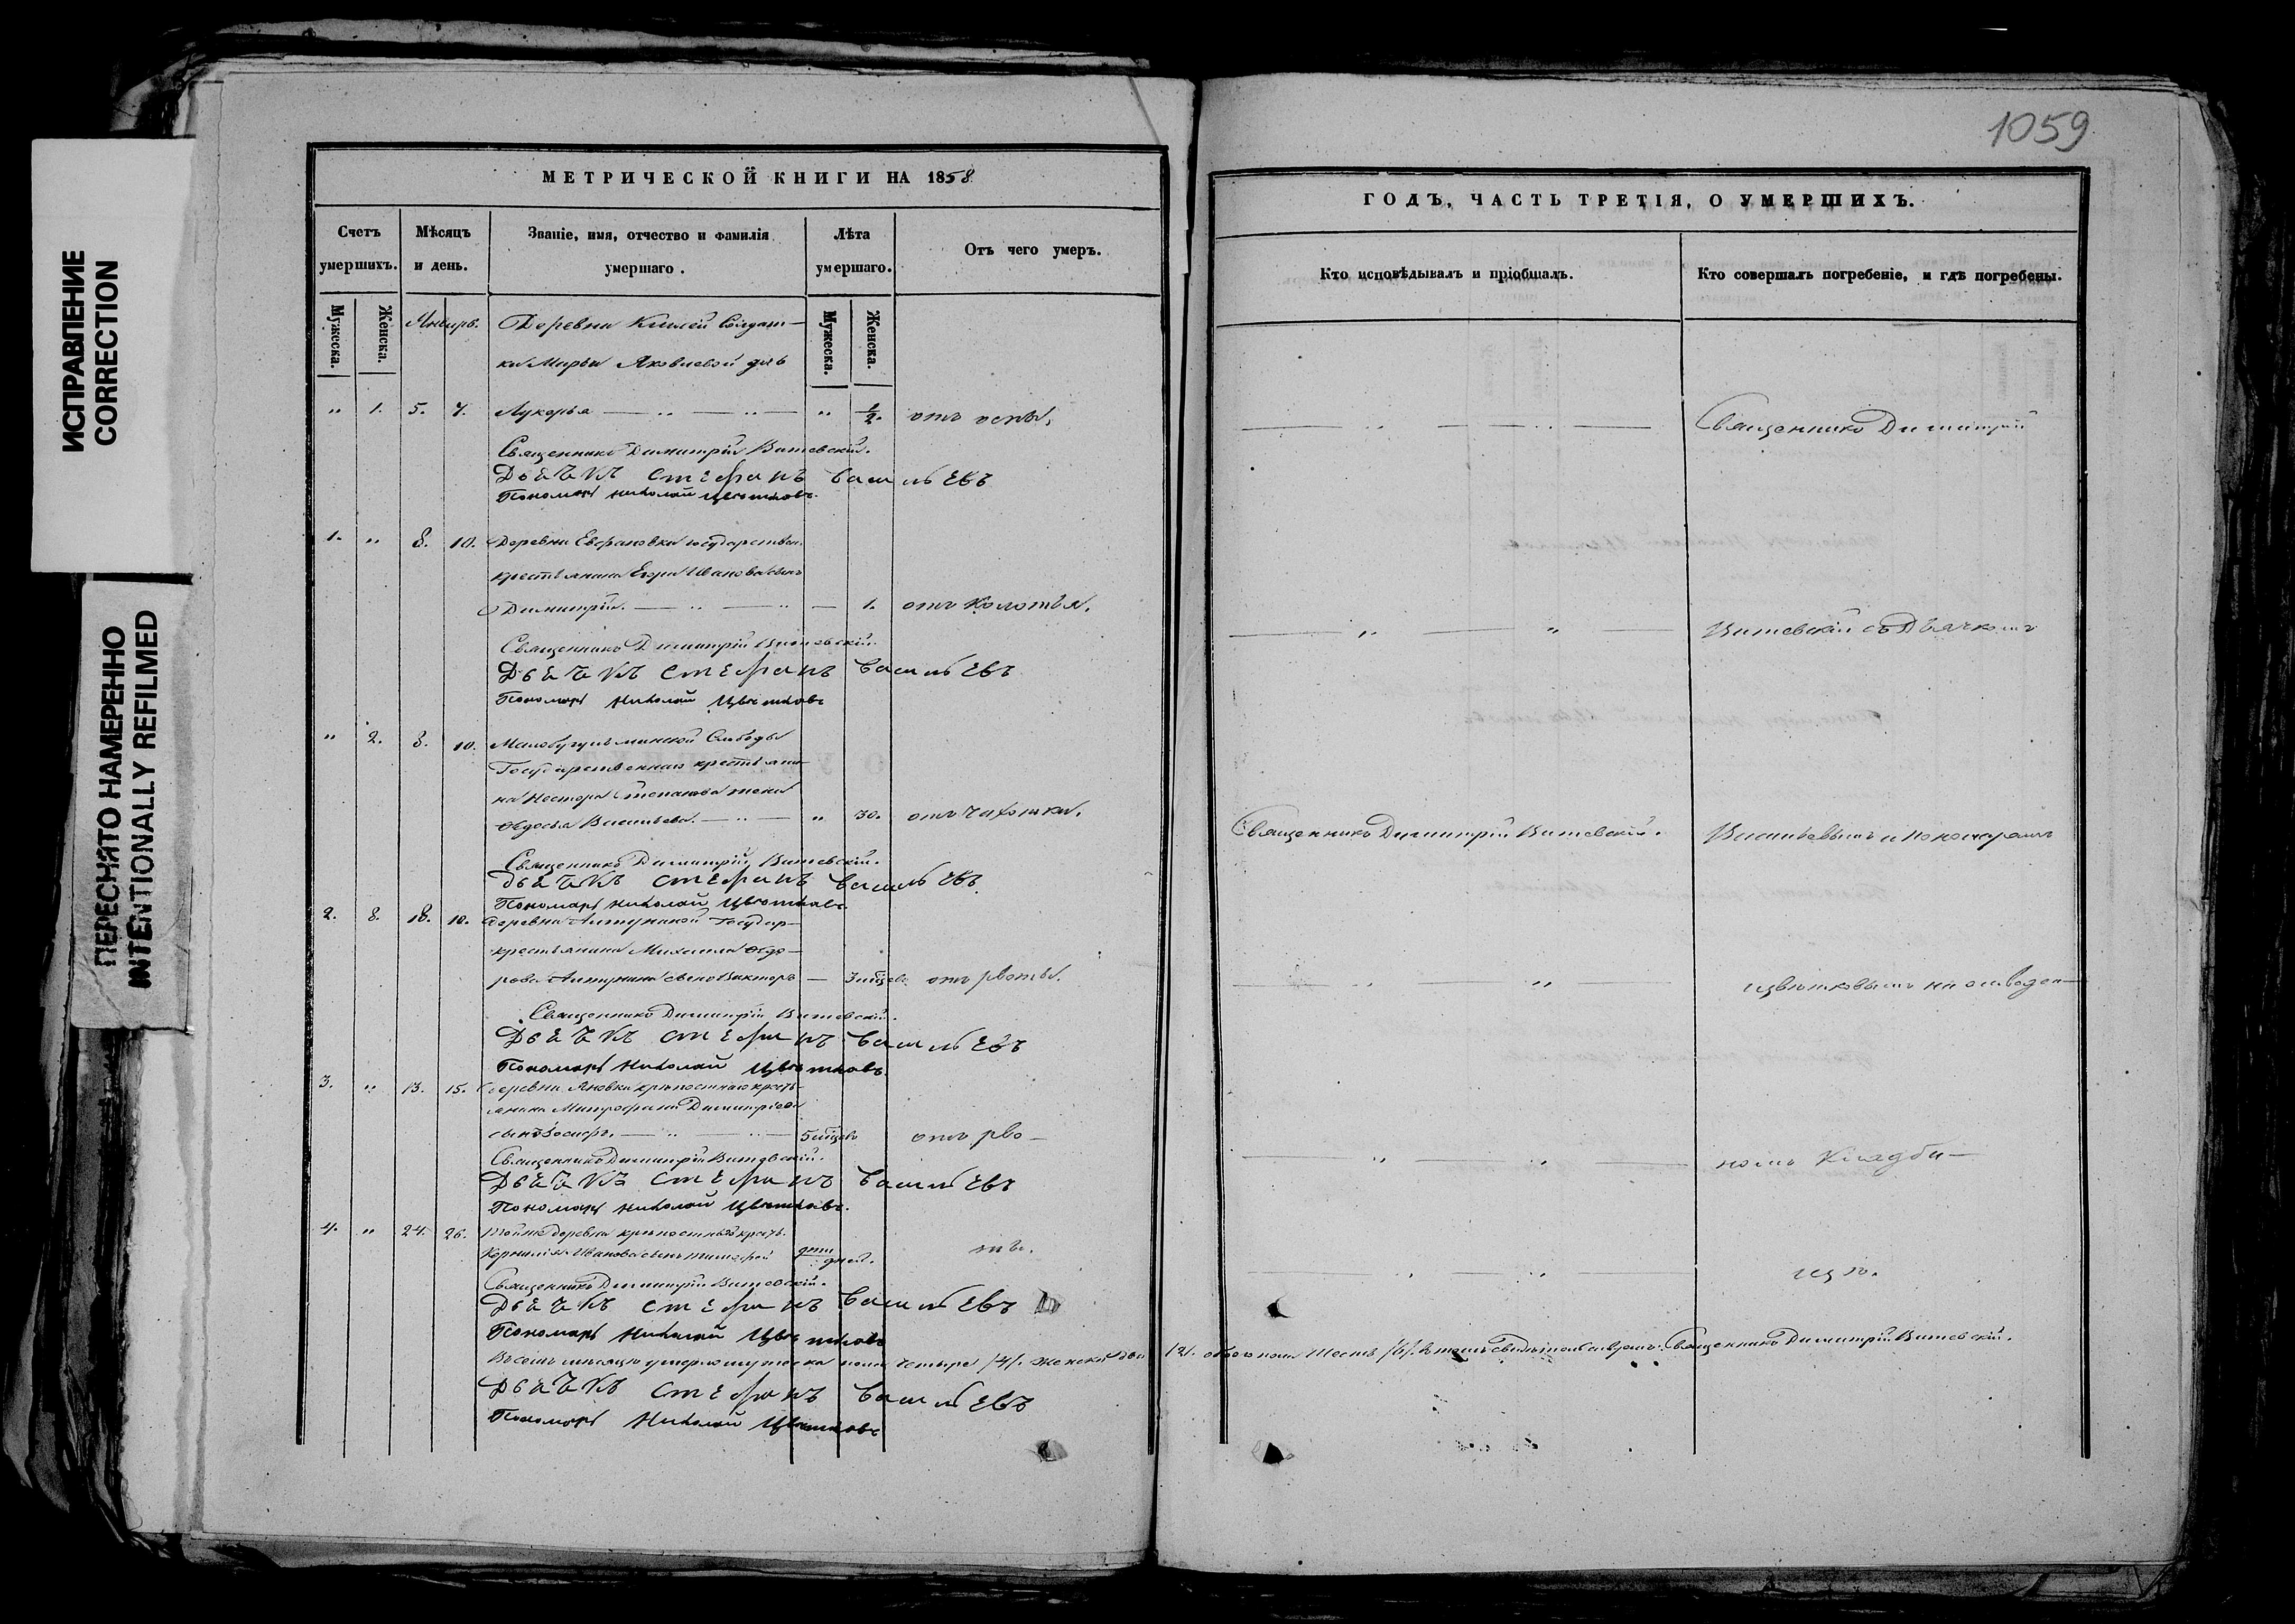 1059
ИСПРАВЛЕНИЕ
CORRECTION
ПЕРЕСНЯТО НАМЕРЕННО
INTENTIONALLY REFILMED
МЕТРИЧЕСКОЙ КНИГИ НА 1858
Счетъ умершихъ.
Мѣсяцъ и день.
Званіе, имя, отчество и фамилія умершаго.
Лѣта умершаго.
Отъ чего умеръ.
Мужеска. Женска.
Мужеска. Женска.
Январь. Деревни Солдат-
ки Марьи Яковлевой дчь
" 1. 5. 7. Лукерья — " — " — " 1/2. отъ оспы.
Священникъ Димитрій Витевскій.
Дьячекъ Стефанъ Васильевъ
Пономарь Николай Цвѣтковъ.
1. " 8. 10. Деревни государствен.
крестьянина Егора Иванова сынъ
Димитрій. — " — " — 1. отъ колотья.
Священникъ Димитрій Витевскій.
Дьячекъ Стефанъ Васильевъ
Пономарь Николай Цвѣтковъ
" 2. 8. 10. Малобугульминской Слободы
Государственнаго крестьяни-
на Нестора Степанова жена
Ѳедосья Васильева. — " — " 30. отъ чахотки.
Священникъ Димитрій Витевскій.
Дьячекъ Стефанъ Васильевъ
Пономарь Николай Цвѣтковъ
2. 8. 18. 10. Деревни Государ-
крестьянина Михаила Ѳедо-
рова сынъ Викторъ — 3 мѣсяц. отъ рвоты.
Священникъ Димитрій Витевскій.
Дьячекъ Стефанъ Васильевъ
Пономарь Николай Цвѣтковъ
3. " 13. 15. Деревни Яновки крѣпостнаго кресть-
янина Митрофана Димитріева
сынъ Іосифъ. — " — " — 5 мѣсяц. отъ рво-
Священникъ Димитрій Витевскій.
Дьячекъ Стефанъ Васильевъ
Пономарь Николай Цвѣтковъ.
4. " 24. 26. Тойже деревни крѣпостной крест.
Корнилія Иванова сынъ Тимофей дней. ты.
Священникъ Димитрій Витевскій.
Дьячекъ Стефанъ Васильевъ
Пономарь Николай Цвѣтковъ
Въ семъ мѣсяцѣ умерло мужеска пола четыре /4/. женска два /2/. обоего пола Шесть /6/. Въ томъ свидѣтельствуемъ: Священникъ Димитрій Витевскій.
Дьячекъ Стефанъ Васильевъ
Пономарь Николай Цвѣтковъ
ГОДЪ, ЧАСТЬ ТРЕТІЯ, О УМЕРШИХЪ.
Кто исповѣдывалъ и пріобщалъ.
Кто совершалъ погребеніе, и гдѣ погребены.
— " — " — Священникъ Димитрій
— " — " — Витевскій съ Дьячкомъ
Священникъ Димитрій Витевскій. Васильевымъ и пономаремъ
— " — " — Цвѣтковымъ на отведен-
— " — " — номъ Кладби-
— " — " — щѣ.